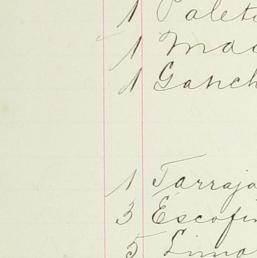 1 Paleto
1 Mao
1 Ganch
1 Tarraja
3 Escofin
5 Lima